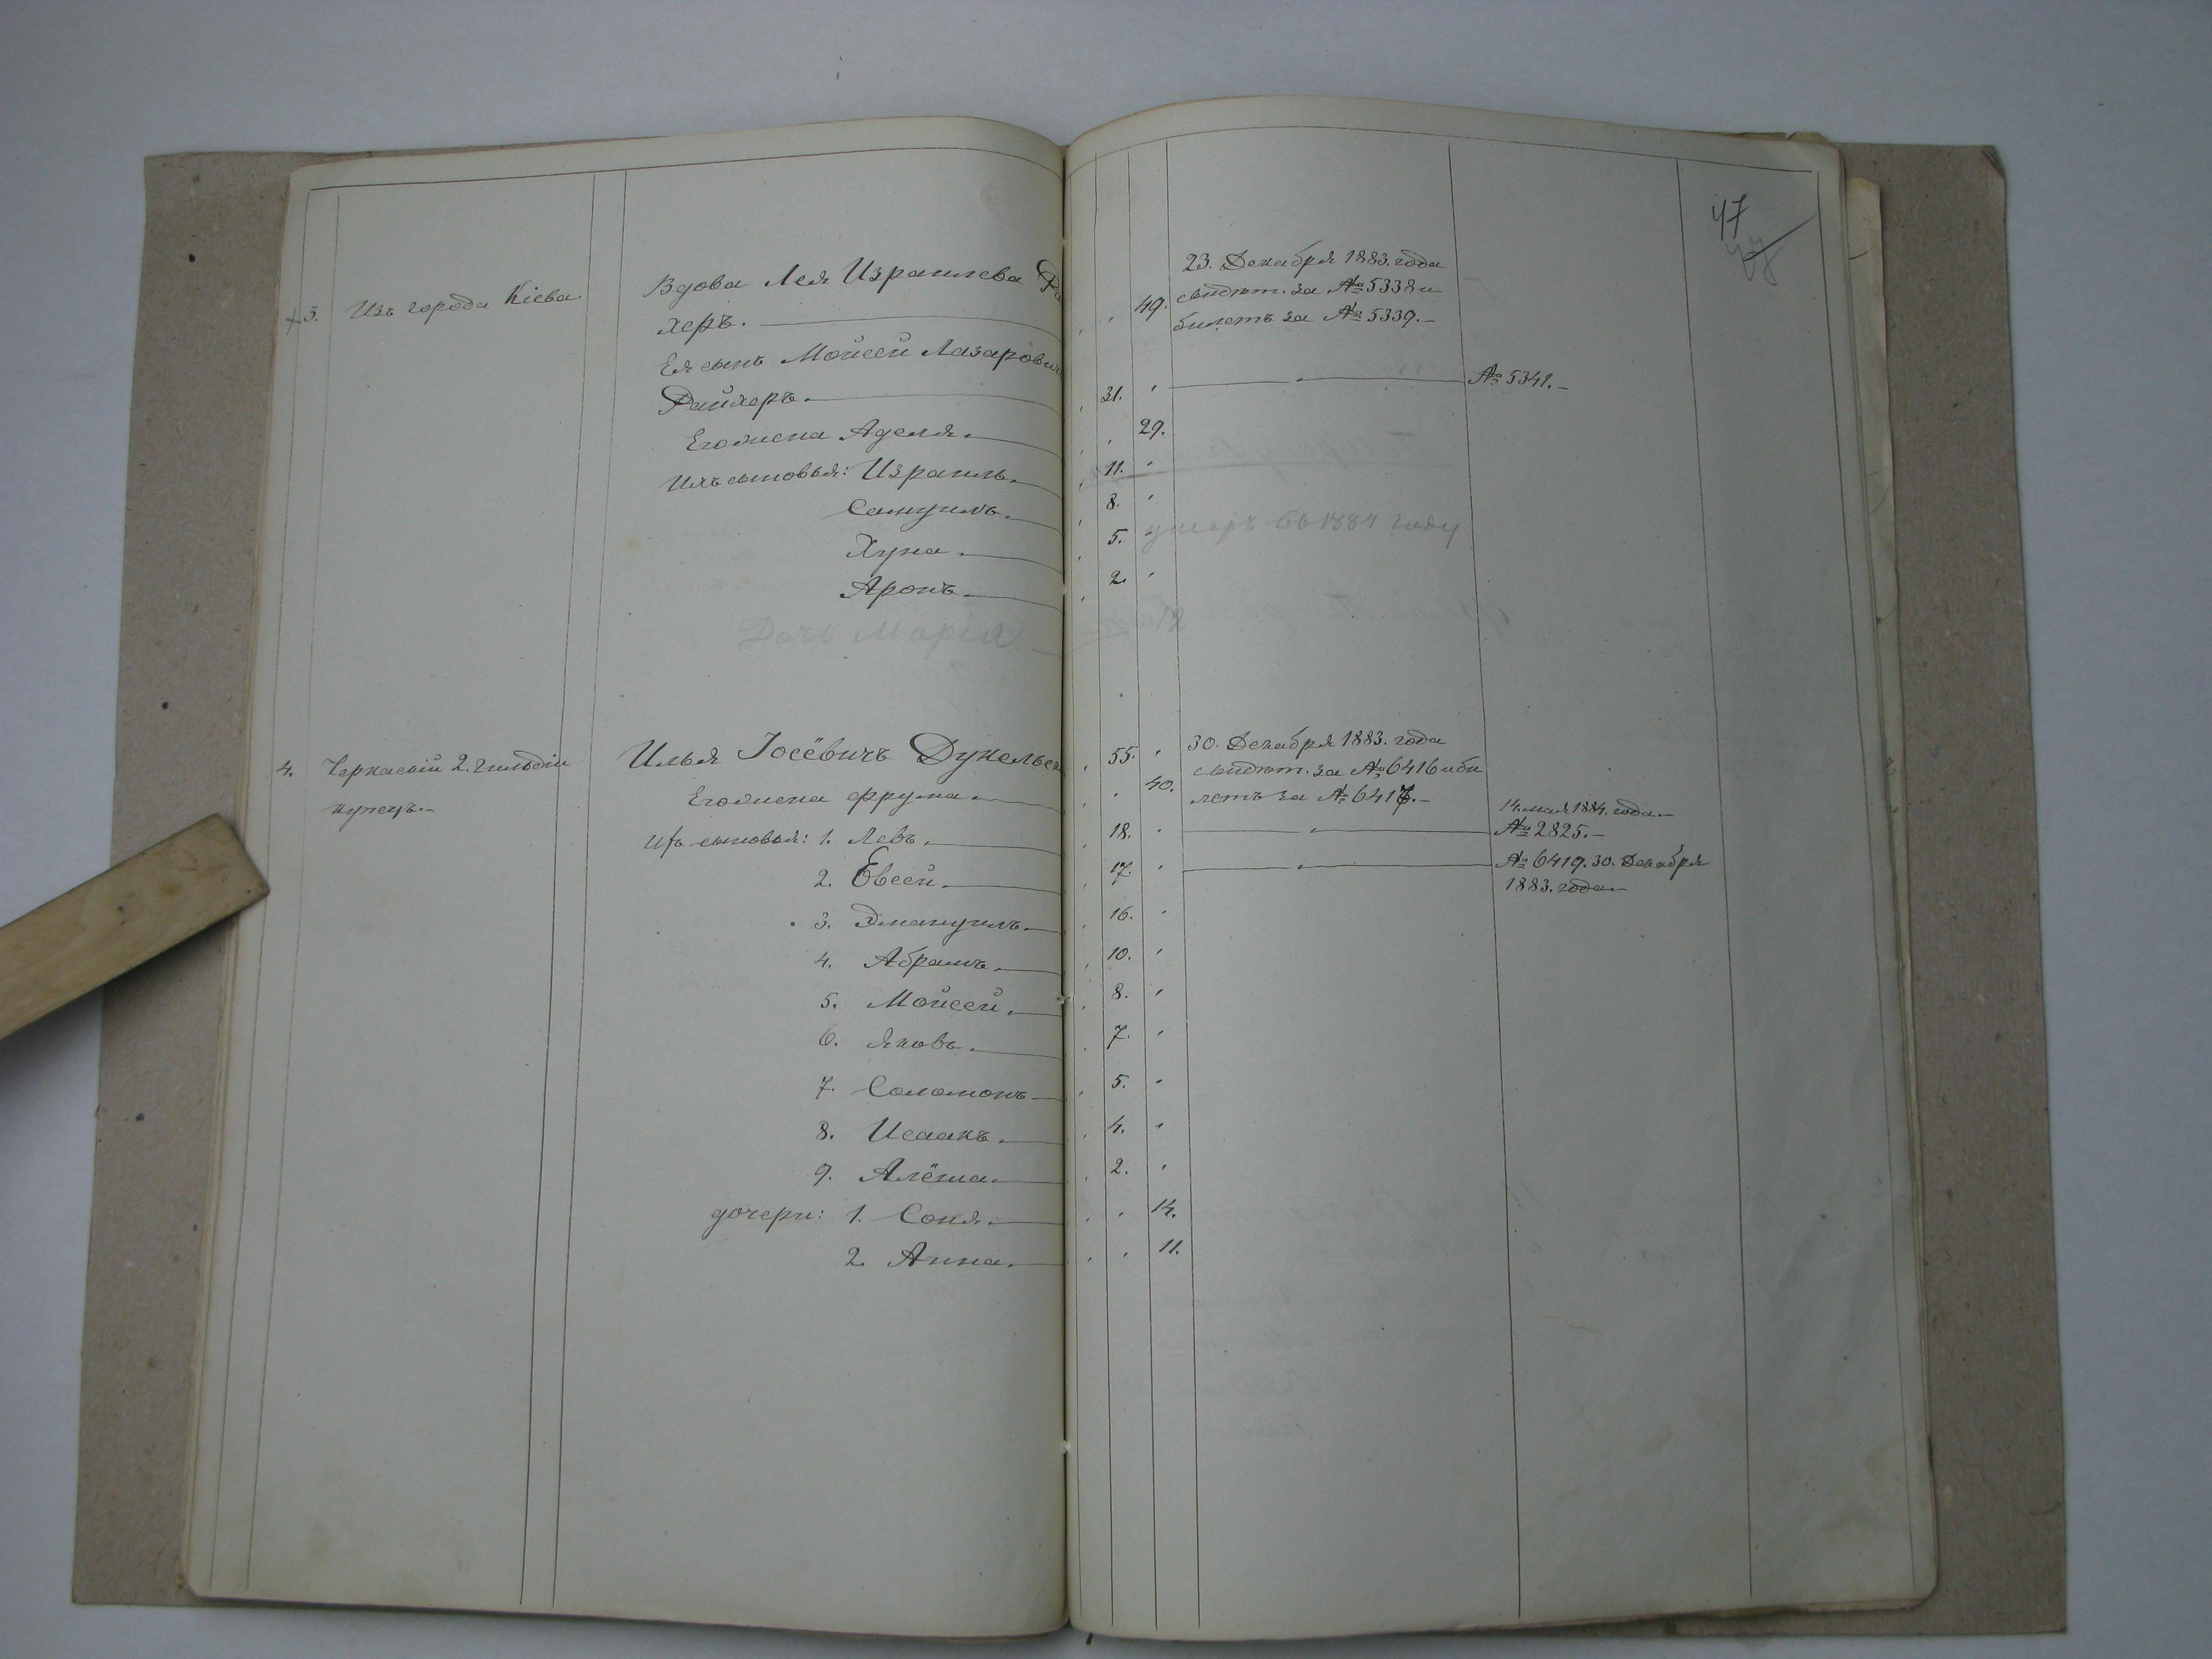 47
+ 3. Изъ города Кіева
Вдова Лея Израилева Ра
49. 23. Декабря 1883. года
свидѣт. за № 5338 и
билетъ за № 5339.—
херъ.
Ея сынъ Мойсей Лазарович
Райхеръ. 31. № 5341.—
Его жена Аделя. 29.
Ихъ сыновья: Израиль. 11.
Самуилъ. 8.
Хуна. 5. умеръ въ 1884 году
Аронъ. 2.
Дочь Марія
4. Черкаскій 2. гильдіи
купецъ.—
Илья Іосёвичъ Дукельск 55. 30. Декабря 1883. года
свидѣт. за № 6416 и би
Его жена Фрума. 40. летъ за № 6417.—
14. мая 1884. года.—
Ихъ сыновья: 1. Левъ. 18. № 2825.—
2. Евсей. 17. № 6419. 30. Декабря
1883. года.—
3. Эмануилъ. 16.
4. Абрамъ. 10.
5. Мойсей. 8.
6. Яковъ. 7.
7. Соломонъ 5.
8. Исаакъ. 4.
9. Алёша. 2.
дочери: 1. Соня. 14.
2. Анна. 11.